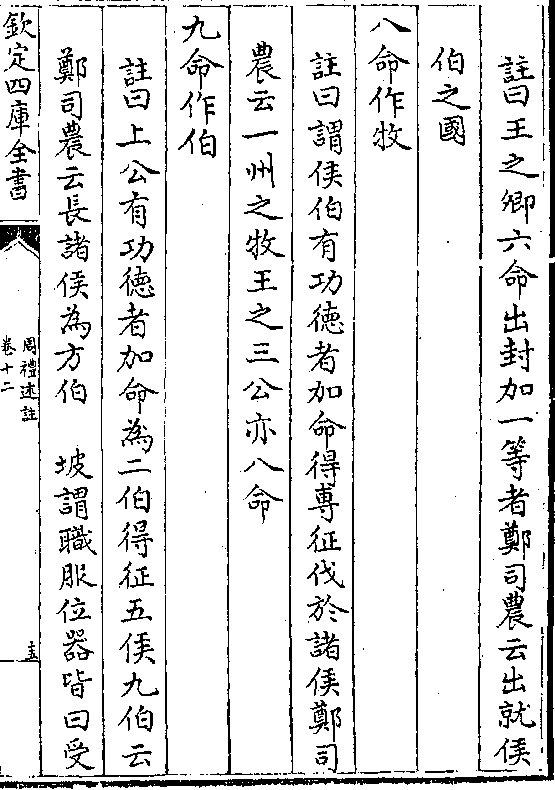 註曰王之卿六命出封加一等者鄭司農云出就侯
伯之國
八命作牧
註曰謂侯伯有功德者加命得專征伐於諸侯鄭司
農云一州之牧王之三公亦八命
九命作伯
註曰上公有功德者加命為二伯得征五侯九伯云
鄭司農云長諸侯為方伯　坡謂職服位器皆曰受
欽定四庫全書
周禮述註
卷十二